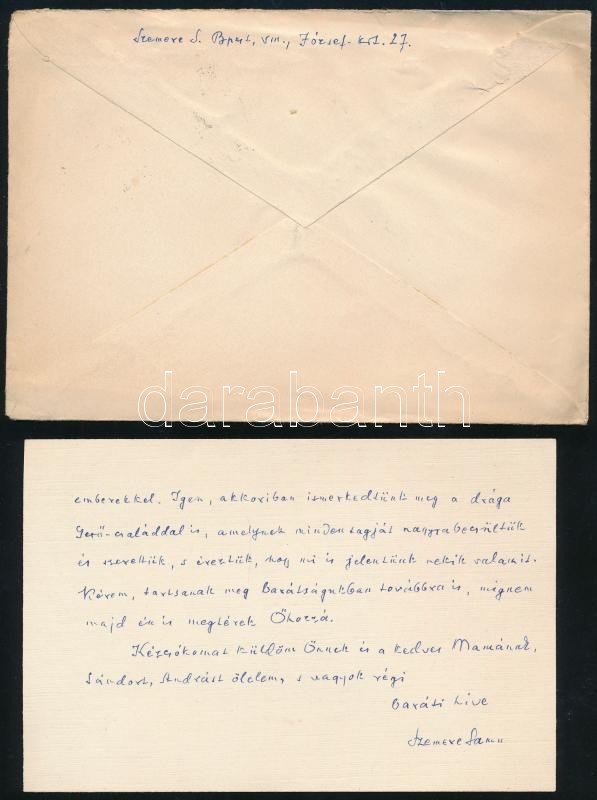 Szemere S. Bpest, VIII., József-krt. 27.
darabanth
emberekkel. Igen, akkoriban ismerkedtünk meg a drága
Gerő-családdal is, amelynek minden tagját nagyrabecsültük
és szerettük, s éreztük, hogy mi is jelentünk nekik valamit.
Kérem, tartsanak meg barátságukban továbbra is, mignem
majd én is megtérek Őhozzá.
Kézcsókomat küldöm Önnek és a kedves Mamának,
Sándort, Andrást ölelem, s vagyok régi
baráti híve
Szemere Samu